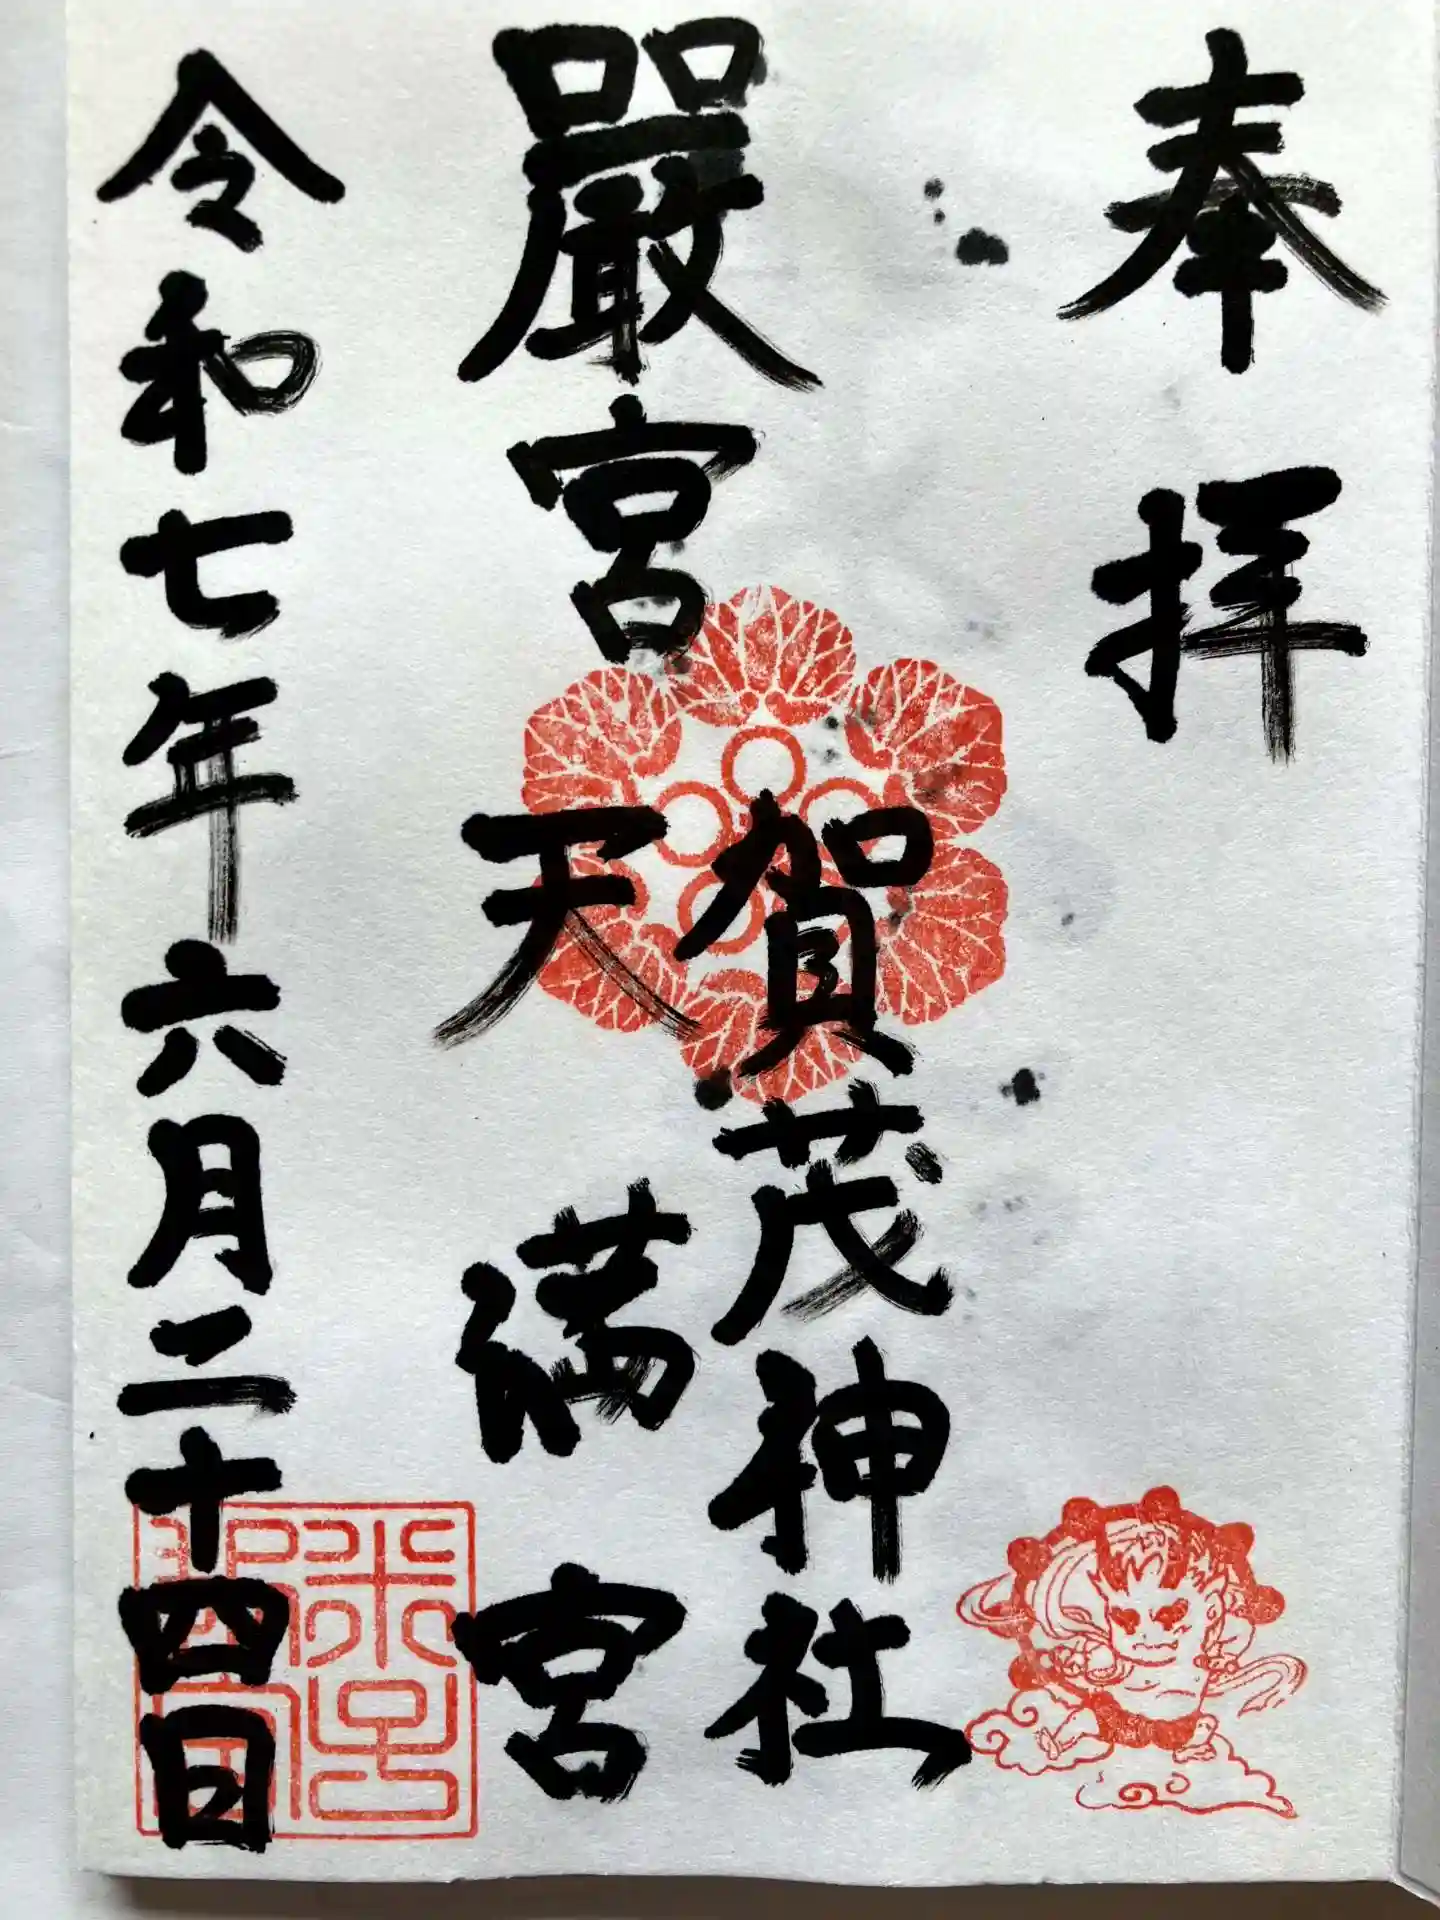 奉拝
嚴宮
賀茂神社
天満宮
令和七年六月二十四日